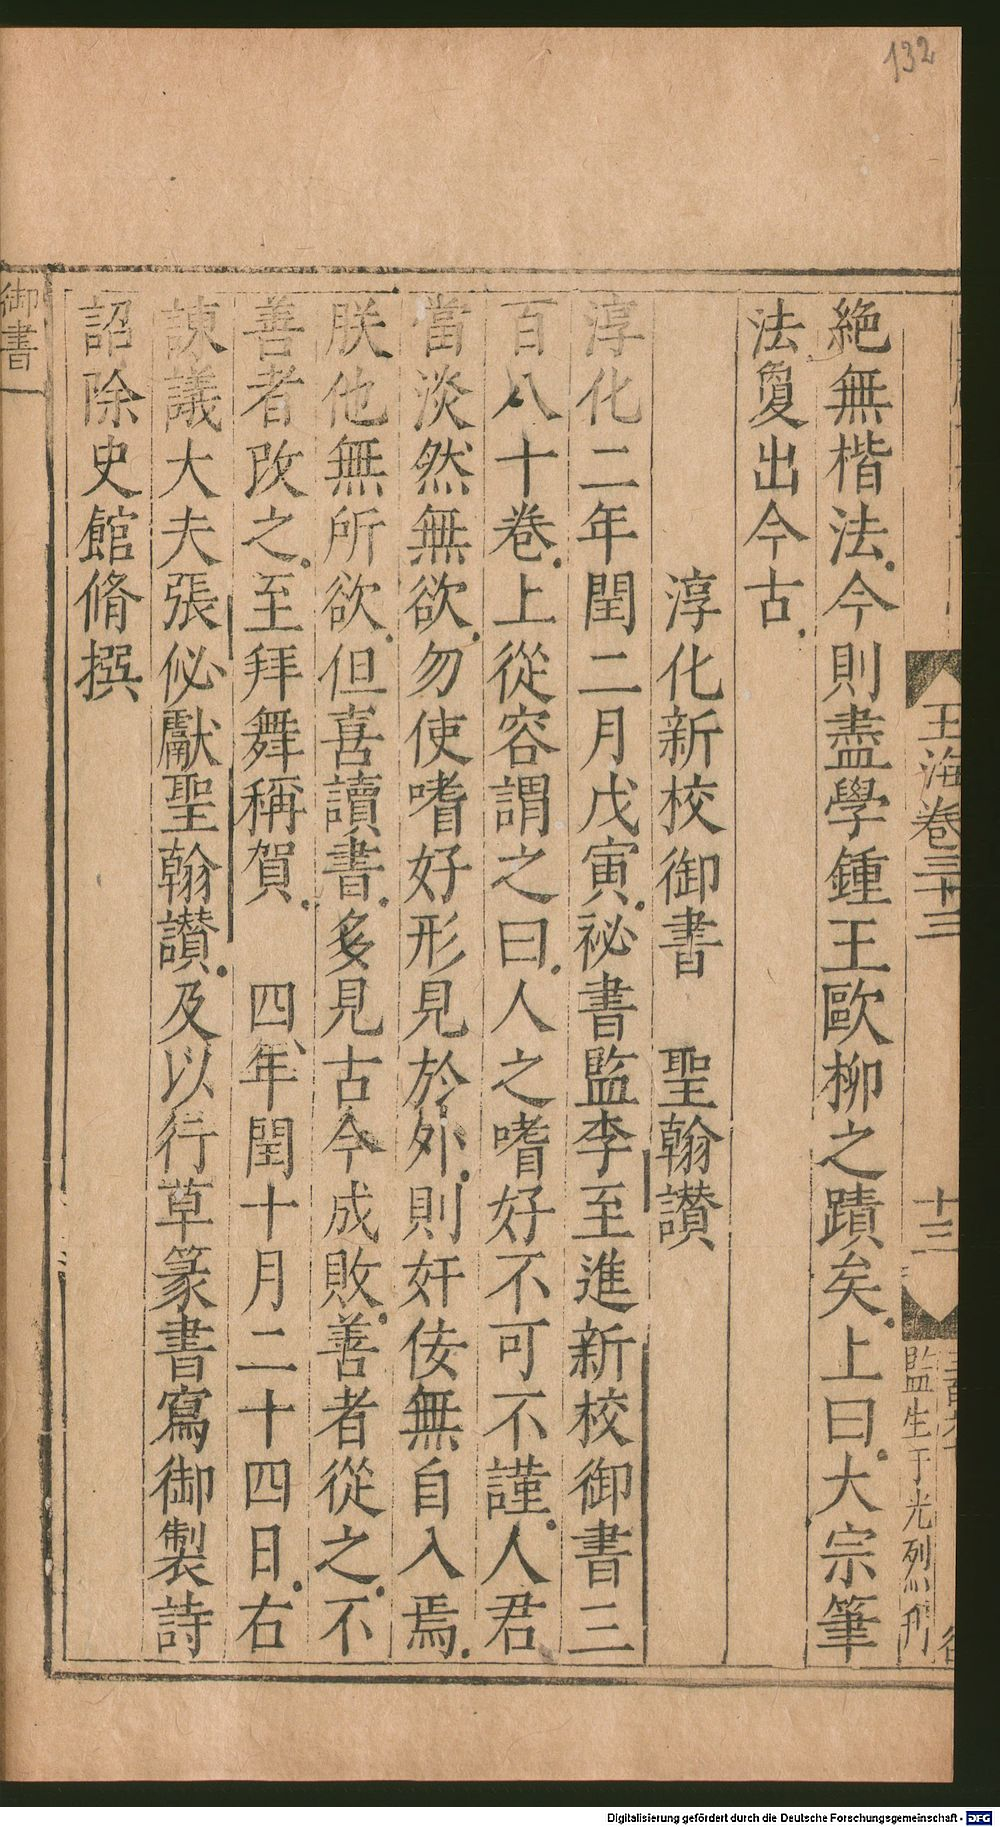 132
玉海卷三十三
十三
監生于光烈刋
絶無楷法今則盡學鍾王歐柳之蹟矣上曰大宗筆
法敻出今古
淳化新校御書　聖翰讃
淳化二年閏二月戊寅祕書監李至進新校御書三
百八十卷上從容謂之曰人之嗜好不可不謹人君
當淡然無欲勿使嗜好形見於外則奸佞無自入焉
朕他無所欲但喜讀書多見古今成敗善者從之不
善者改之至拜舞稱賀　四年閏十月二十四日右
諫議大夫張佖獻聖翰讃及以行草篆書寫御製詩
詔除史館脩撰
御書
Digitalisierung gefördert durch die Deutsche Forschungsgemeinschaft - DFG